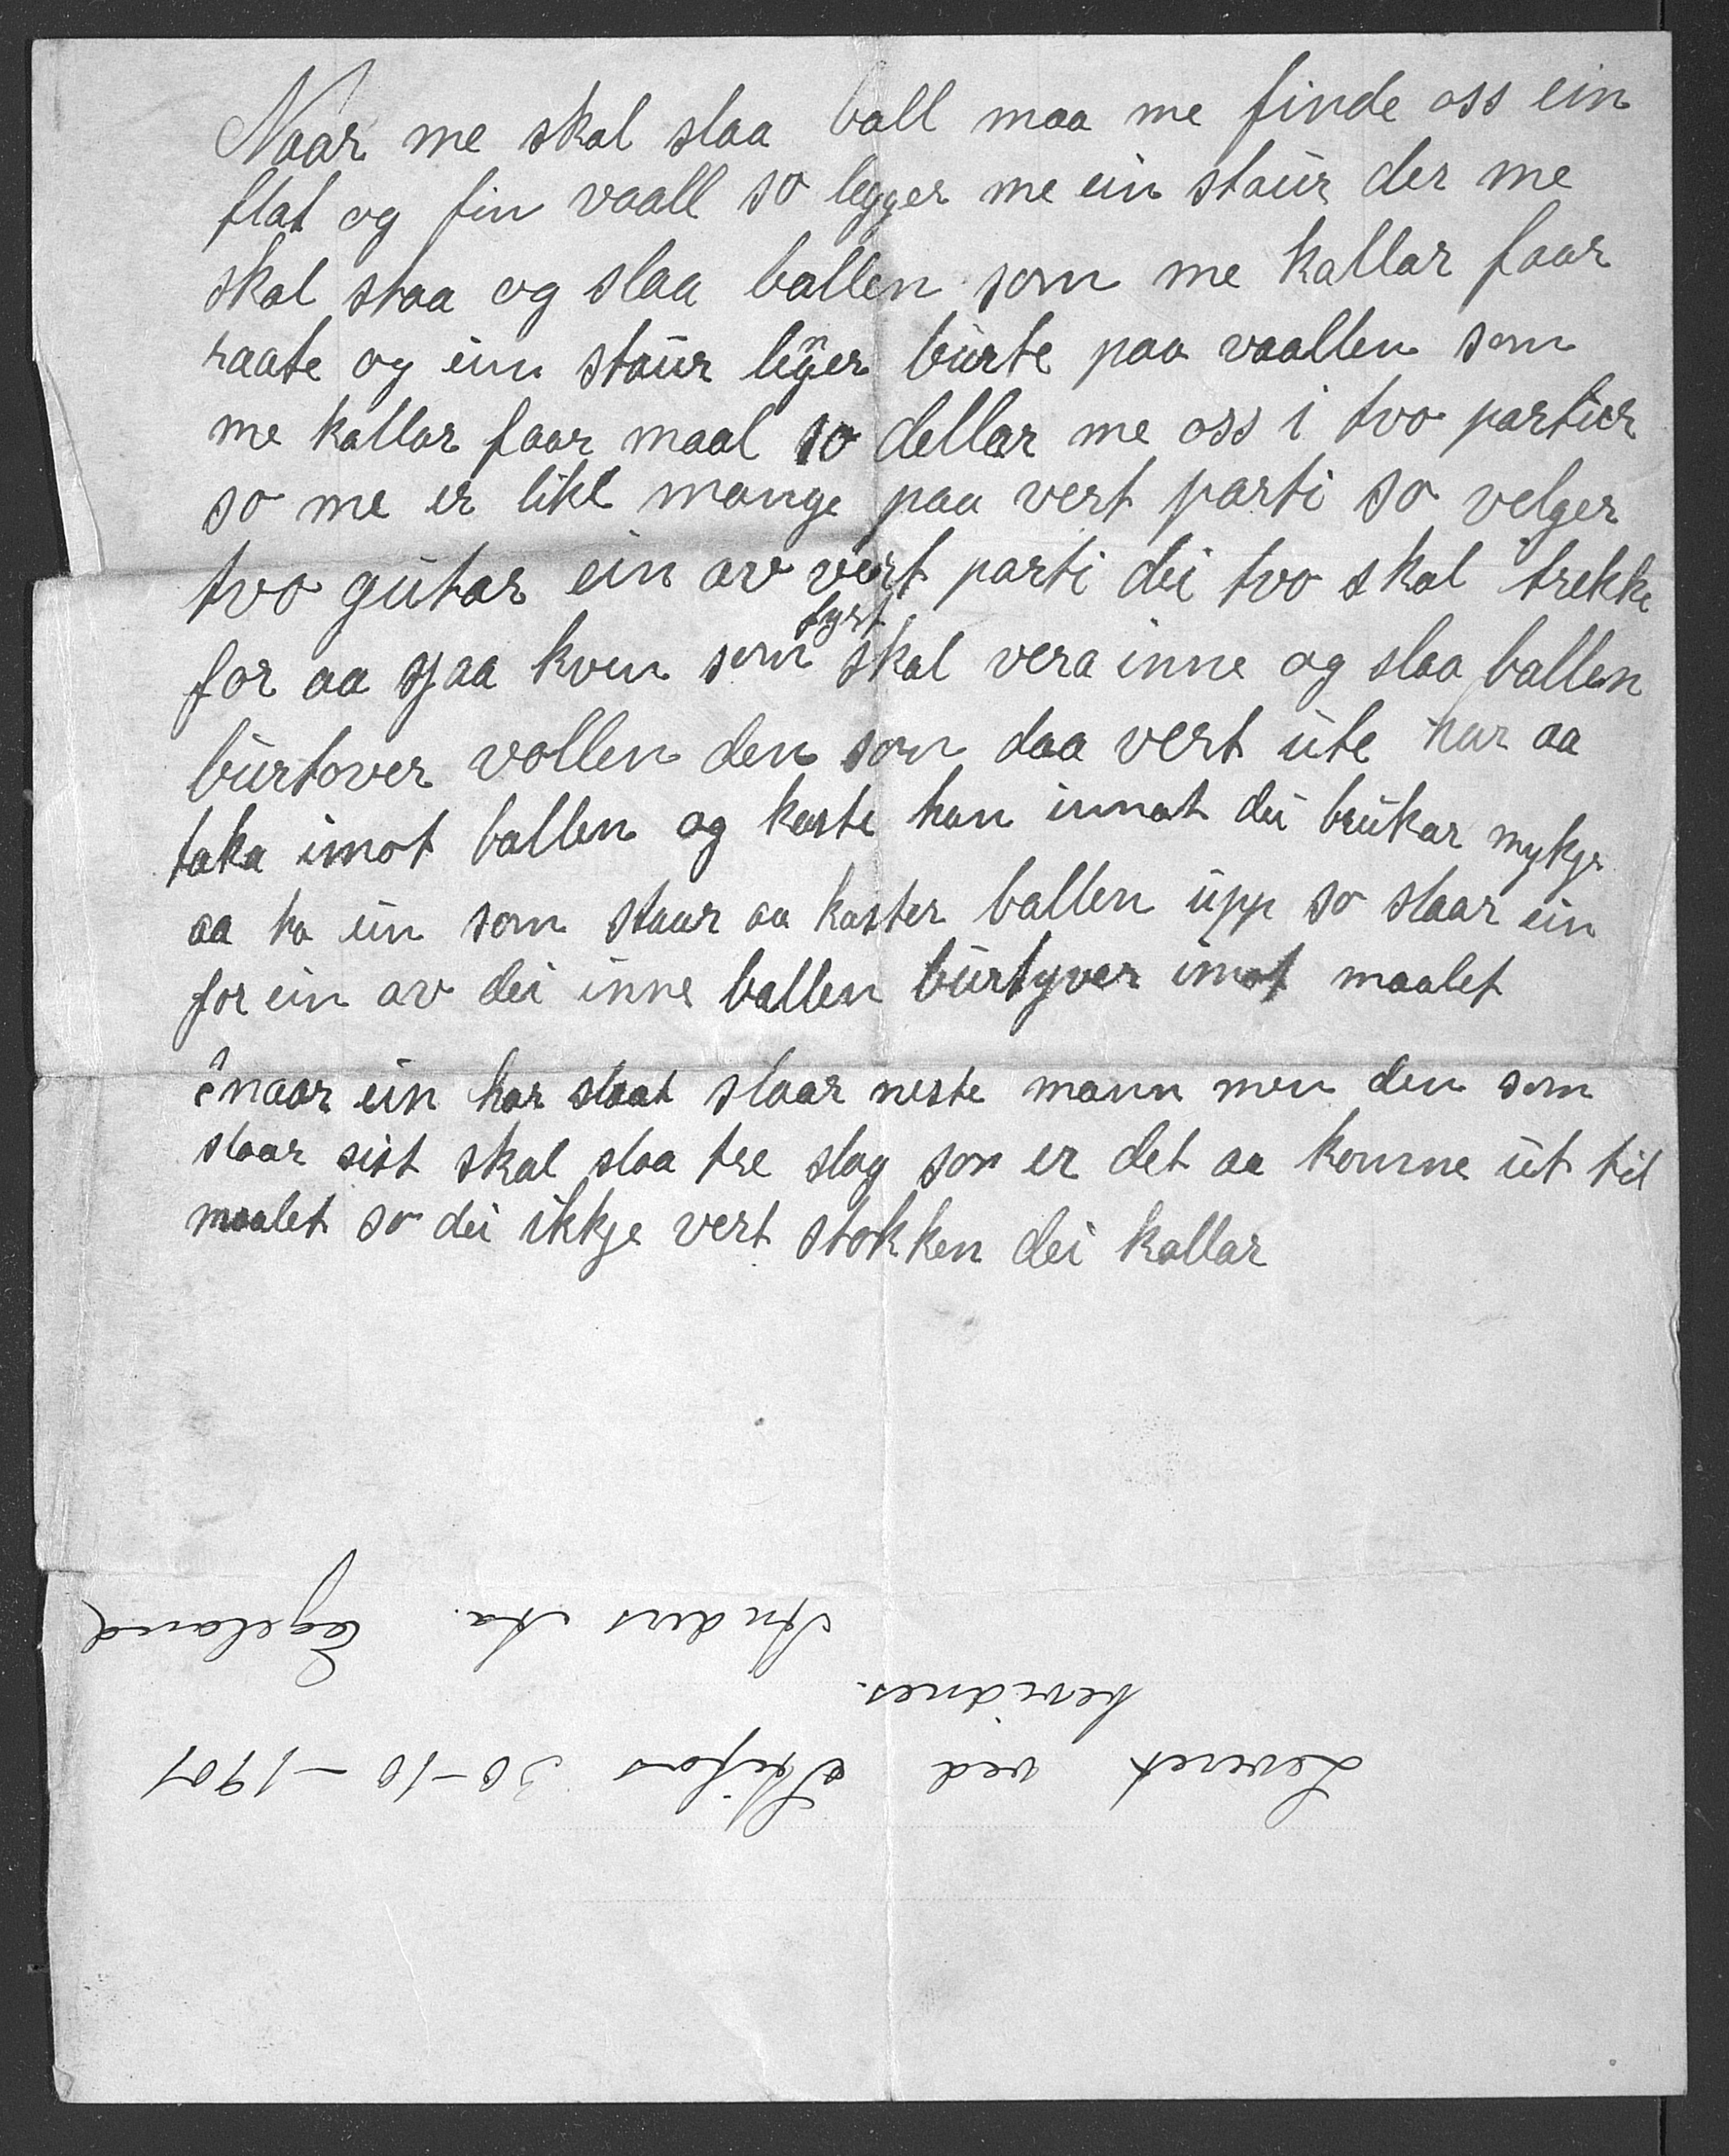 Naar me skal slaa ball maa me finde oss ein
flat og fin vaall so legger me ein staur der me
skal staa og slaa ballen som me kallar faar
raate og ein staur ligger burte paa vaallen som
me kallar faar maal so dellar me oss i tvo partier
so me er like mange paa vert parti so velger
tvo gutar ein av vert parti dei tvo skal trekke
for aa sjaa kven som fyrst skal vera inne og slaa ballen
burtover vollen den som daa vert ute har aa
taka imot ballen og kaste han innat dei brukar mykje
aa ha ein som staar aa kaster ballen upp so slaar ein
for ein av dei inne ballen burtyver imot maalet
naar ein har slaat slaar neste mann men den som
slaar sist skal slaa tre slag son er det aa komme ut til
maalet so dei ikkje vert stokken dei kallar
Leveret ved 30-10-1907
bevidnes.
Anders Aa. Egeland